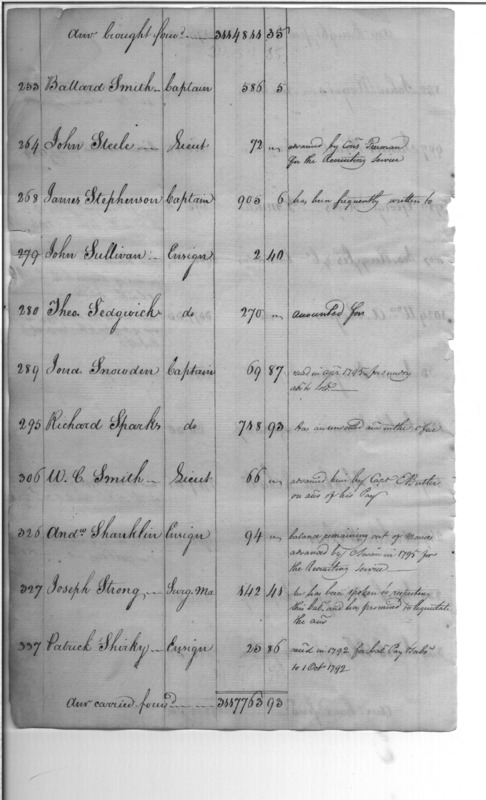 Amt. brought forwd. 344484 35
253 Ballard Smith Captain 586 5
264 John Steele Lieut 72 advanced by for the Recruiting Service
268 James Stephenson Captain 905 6 has been frequently written to
279 John Sullivan Ensign 2 40
280 Theo. Sedgwick do 270 accounted for
289 Jona Snowden Captain 69 87 in apr 1795 for
295 Richard Sparks do 748 93 has an account in the office
306 W. C. Smith Lieut 66 advanced him by Capt E Butler
on acct of his Pay
326 Andw. Shanklin Ensign 94 balance remaining out of Monies
advanced by Swan in 1795 for
the Recruiting Service
327 Joseph Strong Surg. Ma 142 41 he has been spoken to respecting
this bal. and has promised to liquidate
the acct
337 Patrick Shirky Ensign 25 86 recd in 1792 for bal. Pay &
to 1 Oct 1792
Amt carried forwd. 347763 93